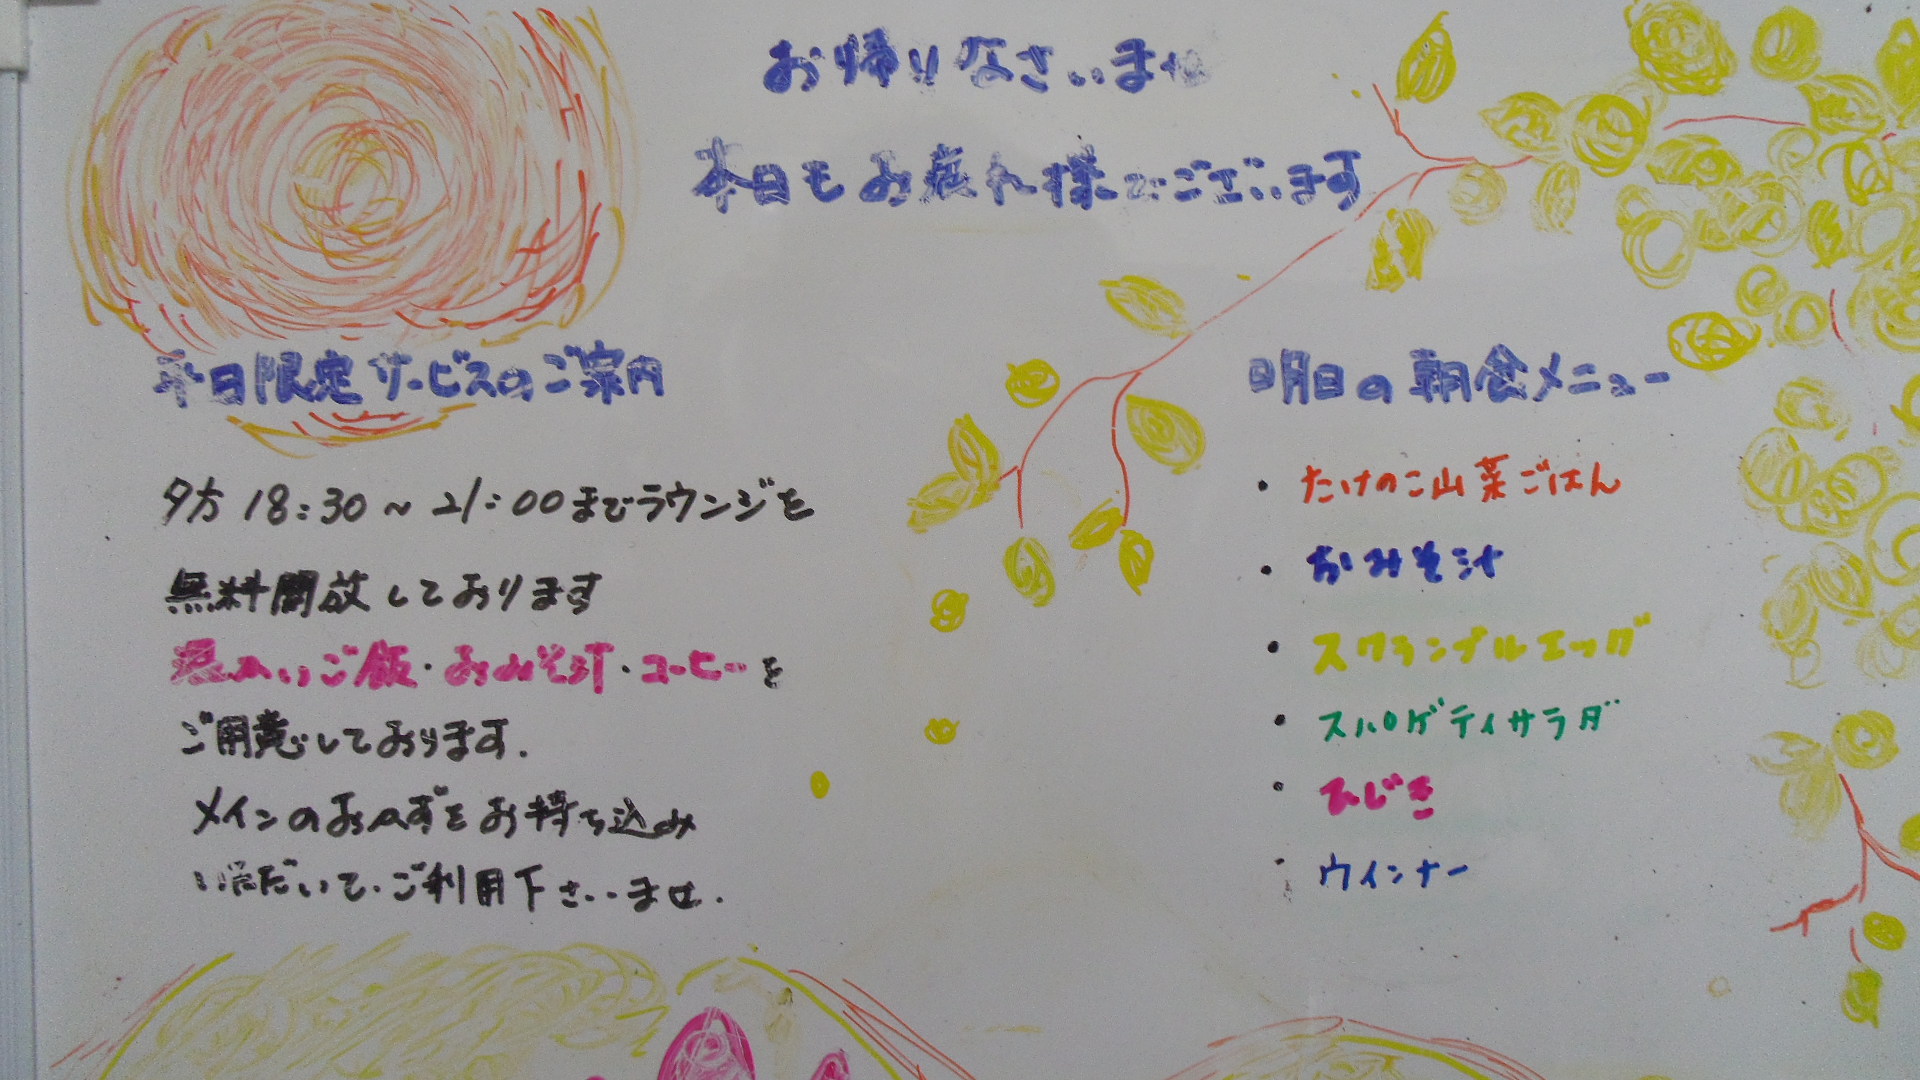 お帰りなさいませ
本日もお疲れ様でございます
平日限定サービスのご案内
夕方 18:30～21:00までラウンジを
無料開放しております
温かいご飯・おみそ汁・コーヒーを
ご用意しております.
メインのおかずをお持ち込み
いただいて、ご利用下さいませ.
明日の朝食メニュー
・たけのこ山菜ごはん
・おみそ汁
・スクランブルエッグ
・スパゲティサラダ
・ひじき
・ウインナー